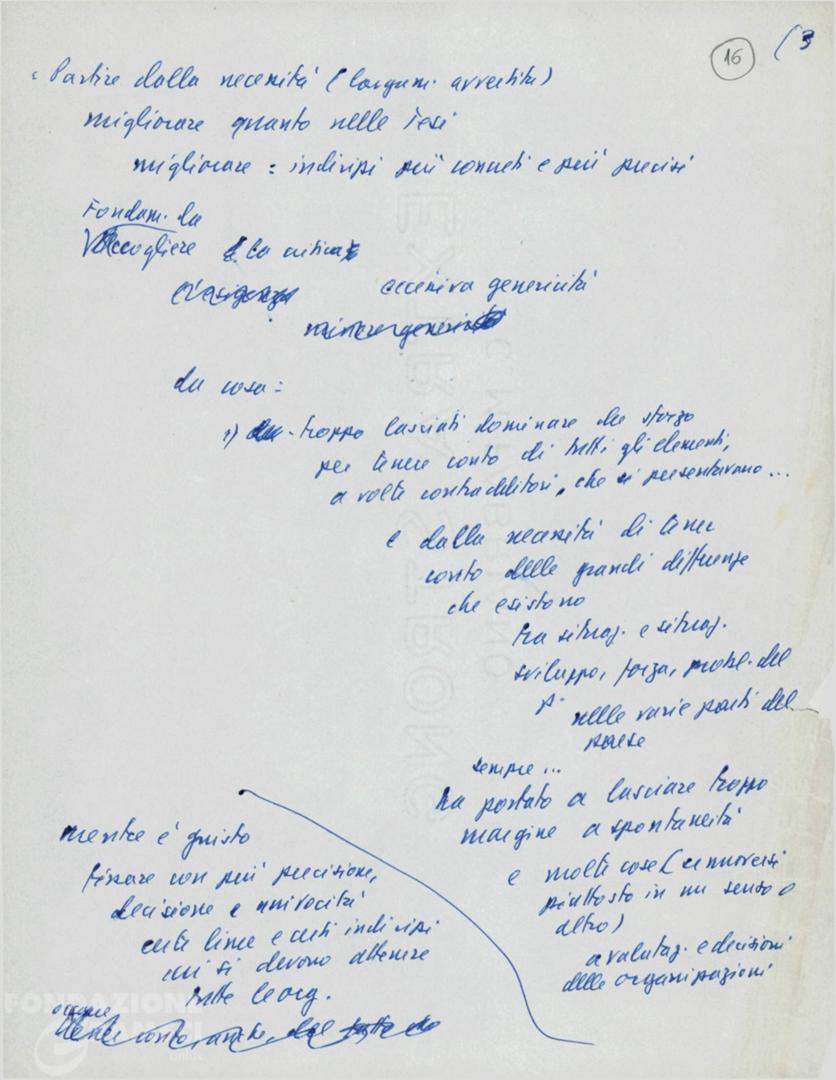 16
(3
Partire dalla necessità (largam. avvertita)
migliorare quanto nelle Tesi
migliorare = indirizzi più concreti e più precisi
Fondam. da
accogliere la critica
eccessiva genericità
da cosa =
1) troppo lasciati dominare da sforzo
per tenere conto di tutti gli elementi,
a volte contradditori, che si presentavano...
e dalla necessità di tener
conto delle grandi differenze
che esistono
tra situaz. e situaz.
sviluppo, forza, probl. del
p.
nelle varie parti del
paese
sempre...
ha portato a lasciare troppo
margine a spontaneità
e molte cose (e muoversi
piuttosto in un senso o
altro)
a valutaz. e decisioni
delle organizzazioni
mentre è giusto
fissare con più precisione,
decisione e univocità
certe linee e certi indirizzi
cui si devono attenere
tutte le org.
occorre
EXTRA STRONG
FONDAZIONE
onlus